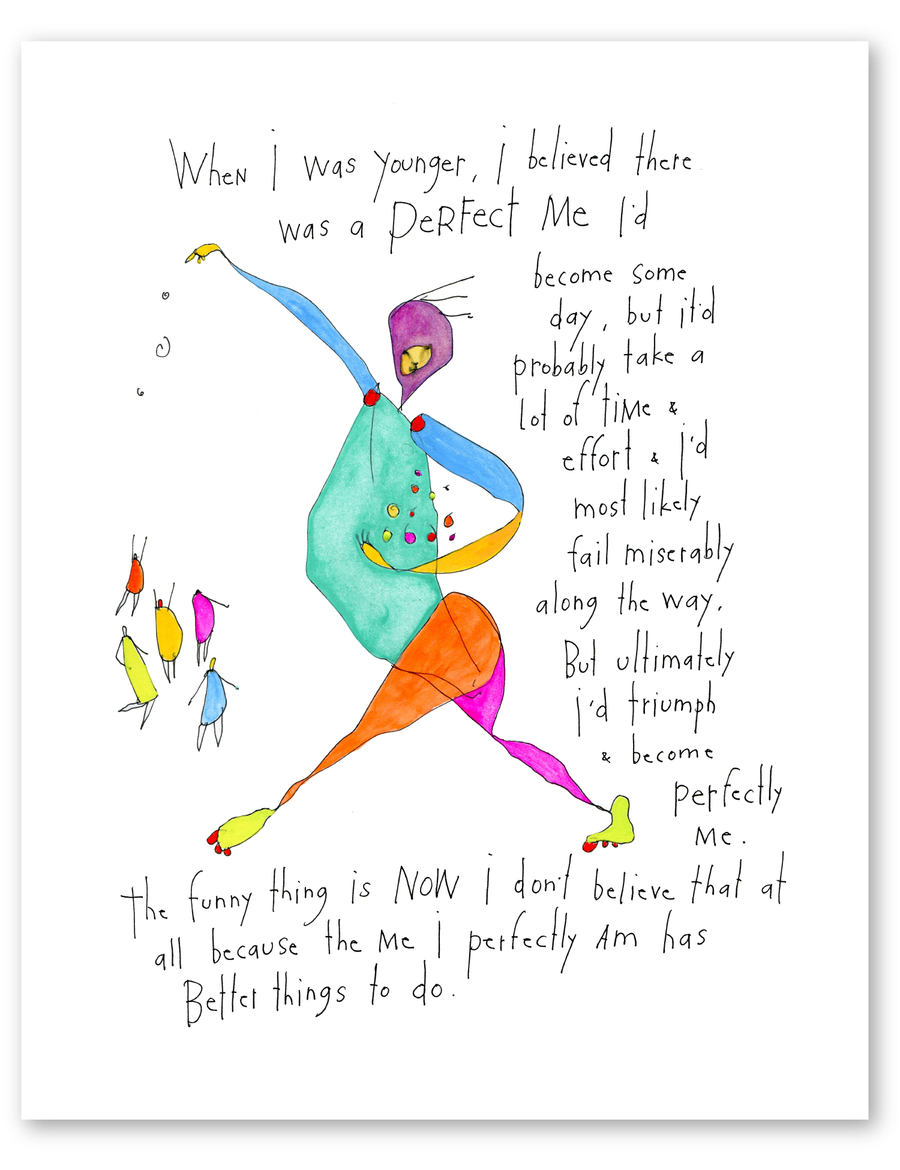 When i was younger, i believed there
was a PeRFect Me I'd
become some
day, but it'd
probably take a
lot of tiMe &
effort & I'd
most likely
fail miserably
along the way.
But ultimately
i'd triumph
& become
perfectly
Me.
the funny thing is NOW i don't believe that at
all because the Me I perfectly AM has
Better things to do.